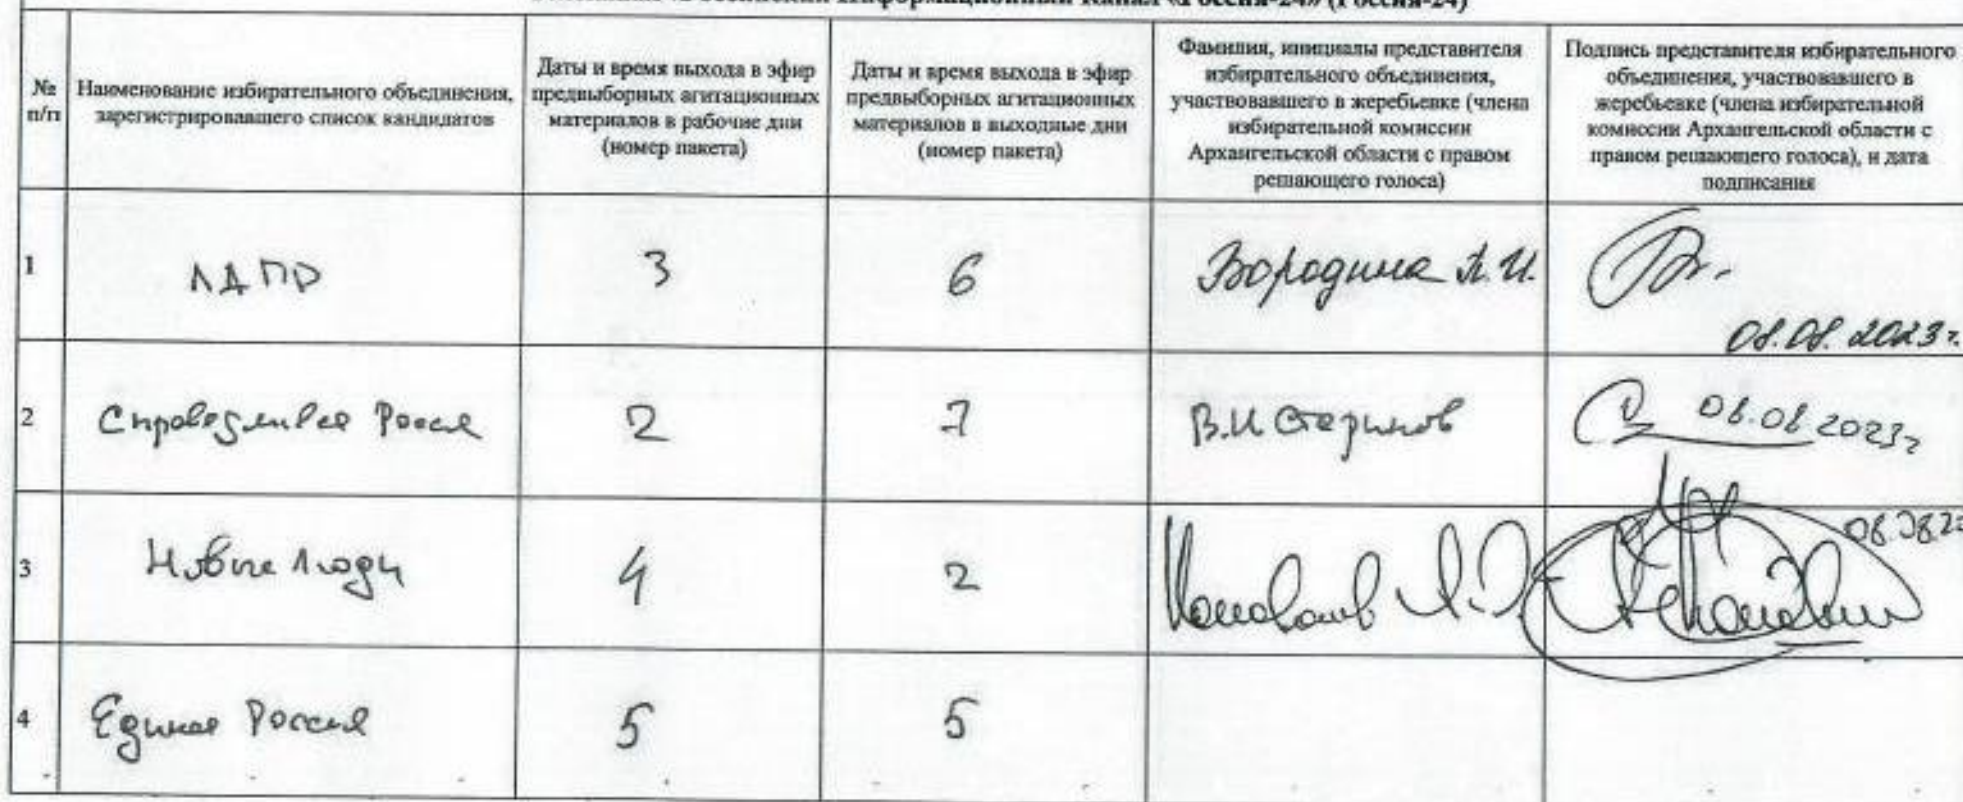 Российский Информационный Канал «Россия-24» (Россия-24)
№
п/п
Наименование избирательного объединения,
зарегистрировавшего список кандидатов
Даты и время выхода в эфир
предвыборных агитационных
материалов в рабочие дни
(номер пакета)
Даты и время выхода в эфир
предвыборных агитационных
материалов в выходные дни
(номер пакета)
Фамилия, инициалы представителя
избирательного объединения,
участвовавшего в жеребьевке (члена
избирательной комиссии
Архангельской области с правом
решающего голоса)
Подпись представителя избирательного
объединения, участвовавшего в
жеребьевке (члена избирательной
комиссии Архангельской области с
правом решающего голоса), и дата
подписания
1
ЛДПР
3
6
Бородина Л.И.
08.08.2023г.
2
Справедливая Россия
2
7
В.И
08.08 2023г
3
Новые люди
4
2
08.08.2
4
Единая Россия
5
5